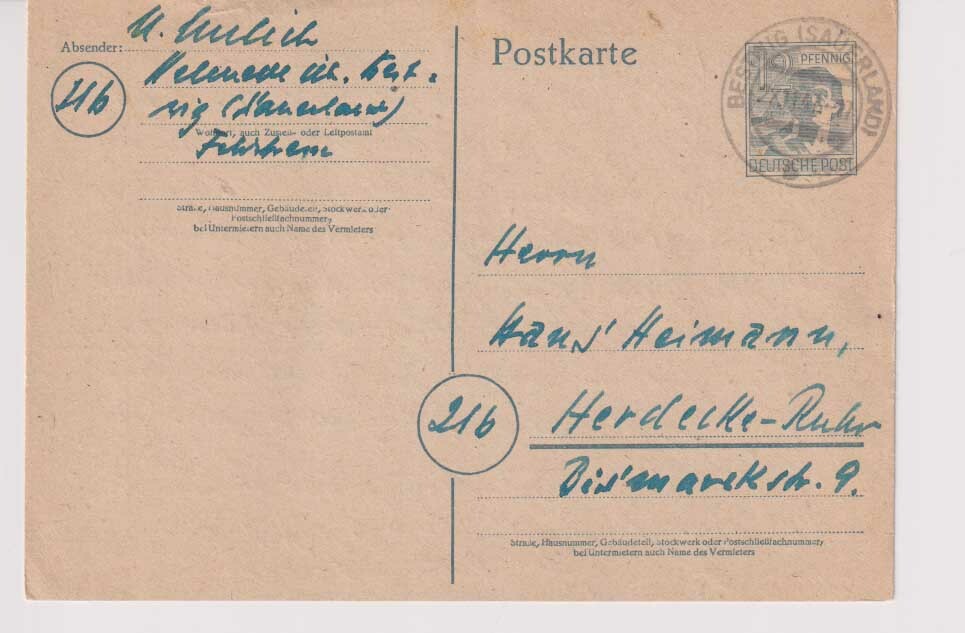 Absender: H. Emlich
Velmede üb. Best-
21b
wig (Sauerland)
Wohnort, auch Zustell- oder Leitpostamt
Straße, Hausnummer, Gebäudeteil, Stockwerk oder
Postschließfachnummer,
bei Untermietern auch Name des Vermieters
Postkarte
BESTWIG (SAUERLAND)
12 PFENNIG
DEUTSCHE POST
Herrn
Hans Heimann,
21b
Herdecke-Ruhr
Bismarckstr. 9.
Straße, Hausnummer, Gebäudeteil, Stockwerk oder Postschließfachnummer,
bei Untermietern auch Name des Vermieters